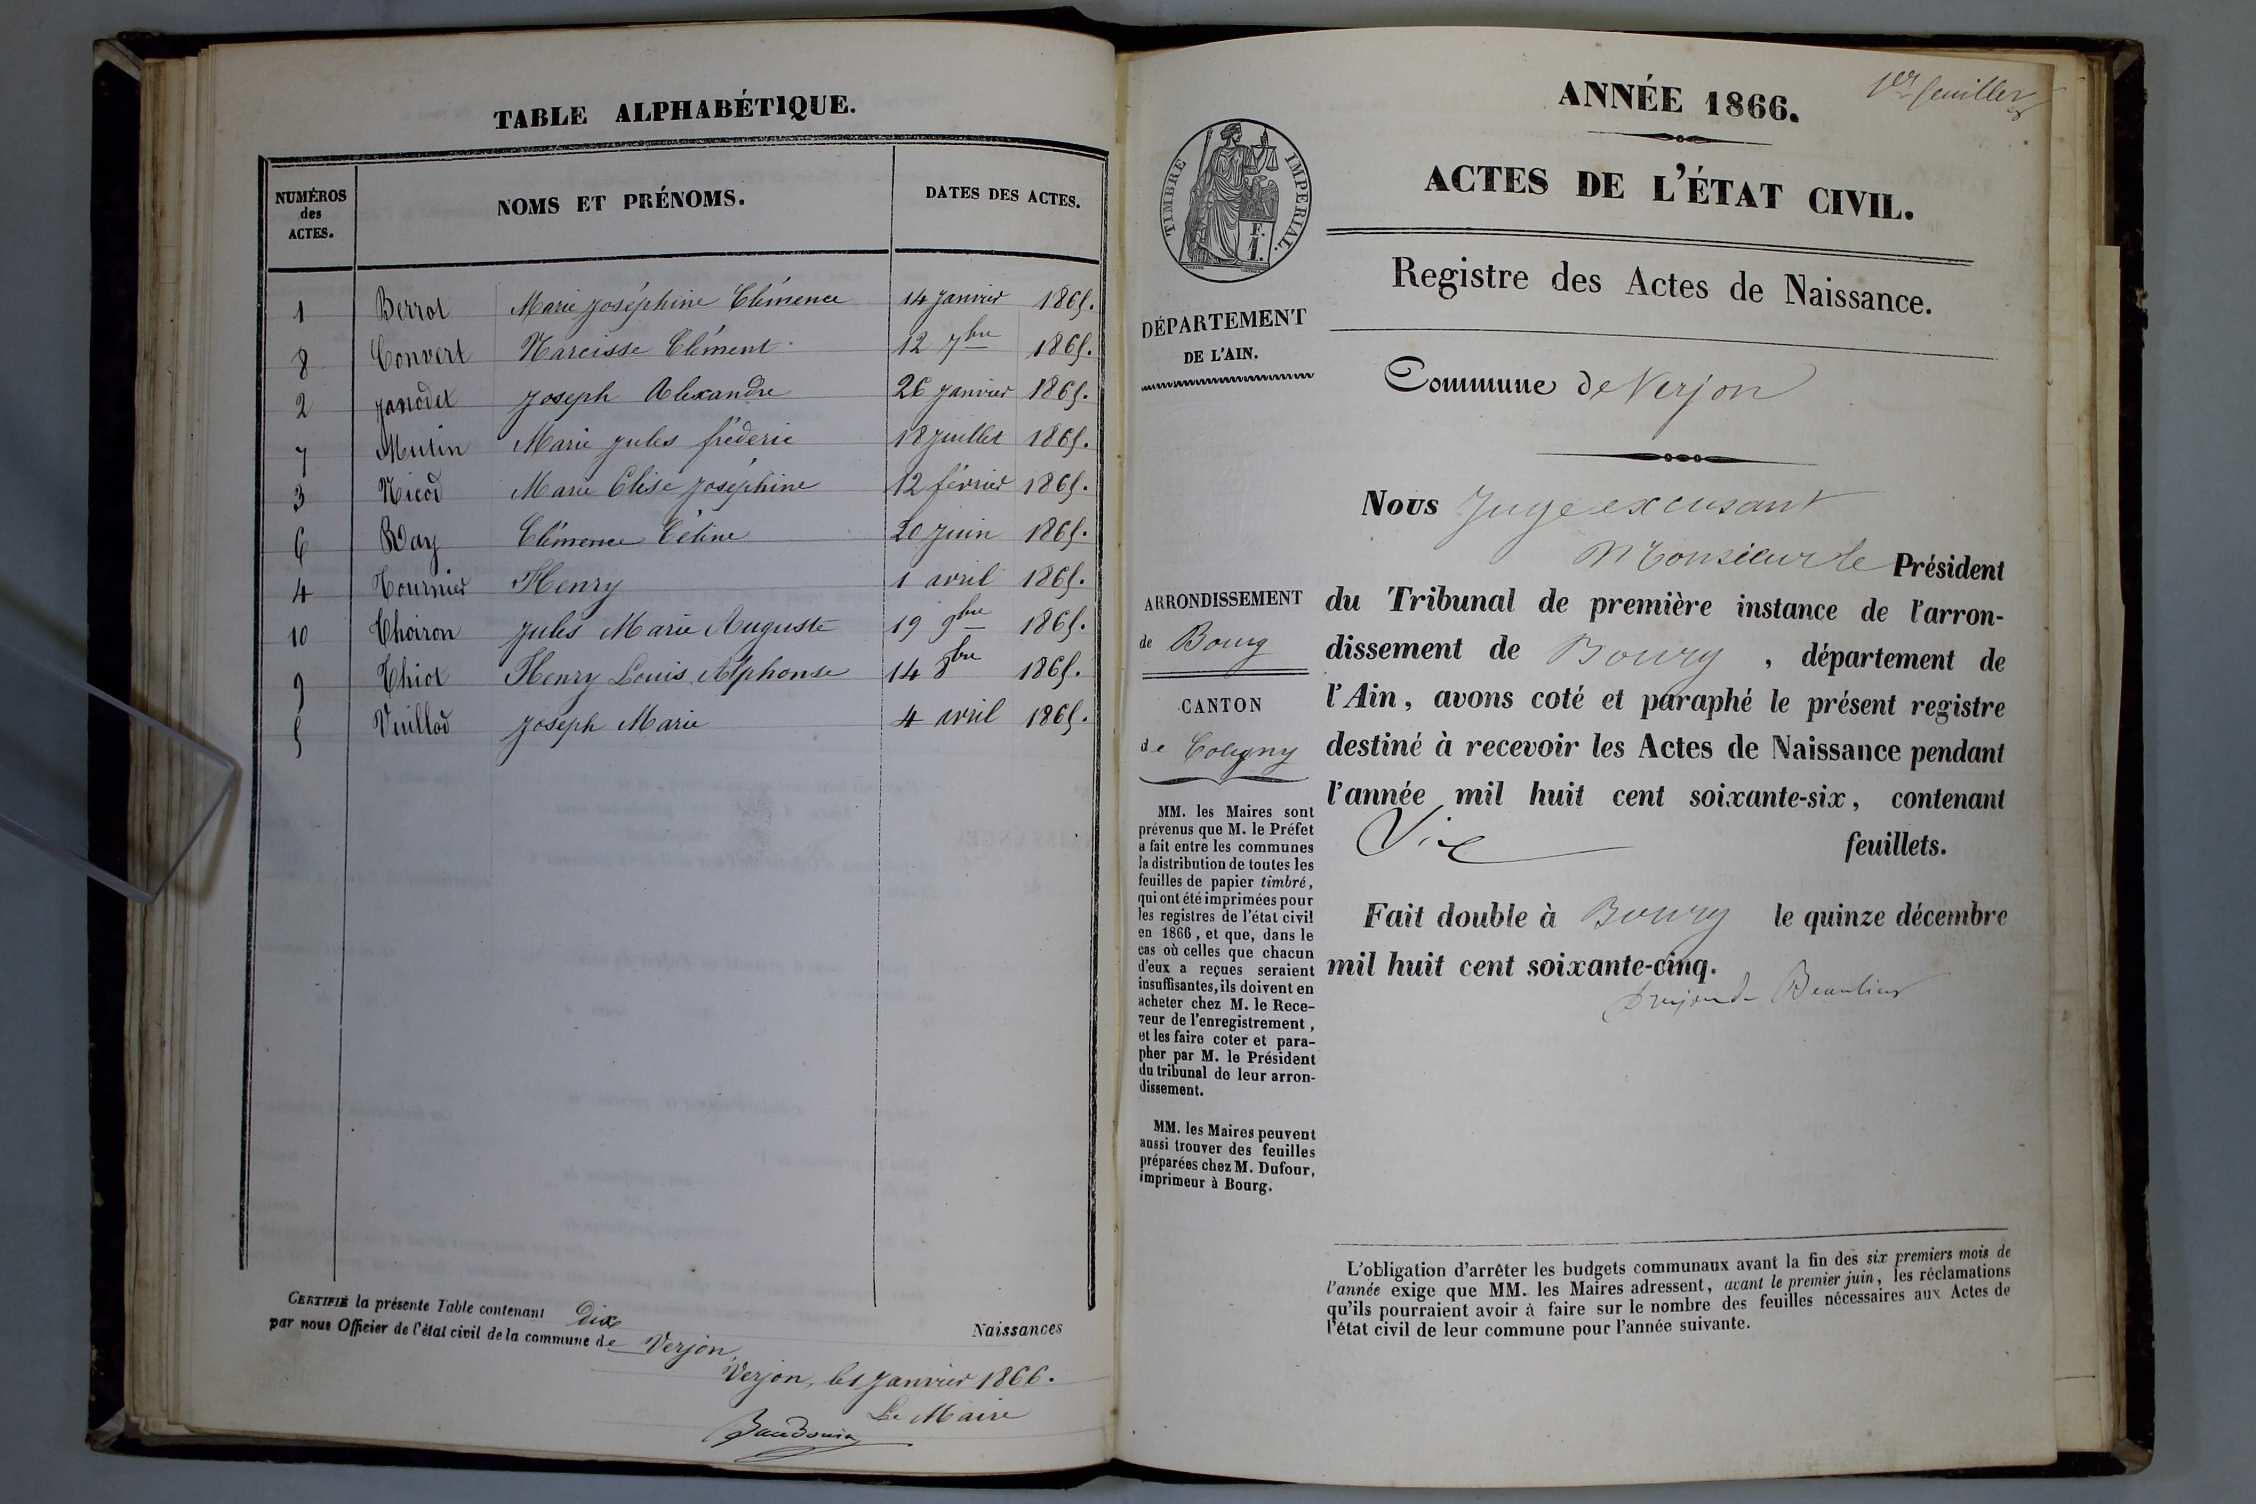 TABLE ALPHABÉTIQUE.
NUMÉROS des ACTES. NOMS ET PRÉNOMS. DATES DES ACTES.
1 Berrot Marie Joséphine Clémence 14 Janvier 1865.
8 Convert Narcisse Clément 12 7bre 1865.
2 Janodet Joseph Alexandre 26 Janvier 1865.
7 Mutin Marie Jules fréderic 18 Juillet 1865.
3 Nicod Marie Elise Joséphine 12 février 1865.
6 Ray Clémence Céline 20 Juin 1865.
4 Tournier Henry 1 avril 1865.
10 Thoiron Jules Marie Auguste 19 9bre 1865.
9 Thiot Henry Louis Alphonse 14 8bre 1865.
5 Vuillod Joseph Marie 4 avril 1865.
CERTIFIÉ la présente Table contenant Dix Naissances
par nous Officier de l'état civil de la commune de Verjon
Verjon, le 1 Janvier 1866.
Le Maire
1er feuillet
ANNÉE 1866.
ACTES DE L'ÉTAT CIVIL.
TIMBRE IMPERIAL.
F.
1.
Registre des Actes de Naissance.
DÉPARTEMENT
DE L'AIN.
Commune de Verjon
Nous Juge excusant
Monsieur le Président
du Tribunal de première instance de l'arron-
dissement de Bourg, département de
l'Ain, avons coté et paraphé le présent registre
destiné à recevoir les Actes de Naissance pendant
l'année mil huit cent soixante-six, contenant
Six feuillets.
Fait double à Bourg le quinze décembre
mil huit cent soixante-cinq.
Beaulieu
ARRONDISSEMENT
de Bourg
CANTON
de Coligny
MM. les Maires sont
prévenus que M. le Préfet
a fait entre les communes
la distribution de toutes les
feuilles de papier timbré,
qui ont été imprimées pour
les registres de l'état civil
en 1866, et que, dans le
cas où celles que chacun
d'eux a reçues seraient
insuffisantes, ils doivent en
acheter chez M. le Rece-
veur de l'enregistrement,
et les faire coter et para-
pher par M. le Président
du tribunal de leur arron-
dissement.
MM. les Maires peuvent
aussi trouver des feuilles
préparées chez M. Dufour,
imprimeur à Bourg.
L'obligation d'arrêter les budgets communaux avant la fin des six premiers mois de
l'année exige que MM. les Maires adressent, avant le premier juin, les réclamations
qu'ils pourraient avoir à faire sur le nombre des feuilles nécessaires aux Actes de
l'état civil de leur commune pour l'année suivante.